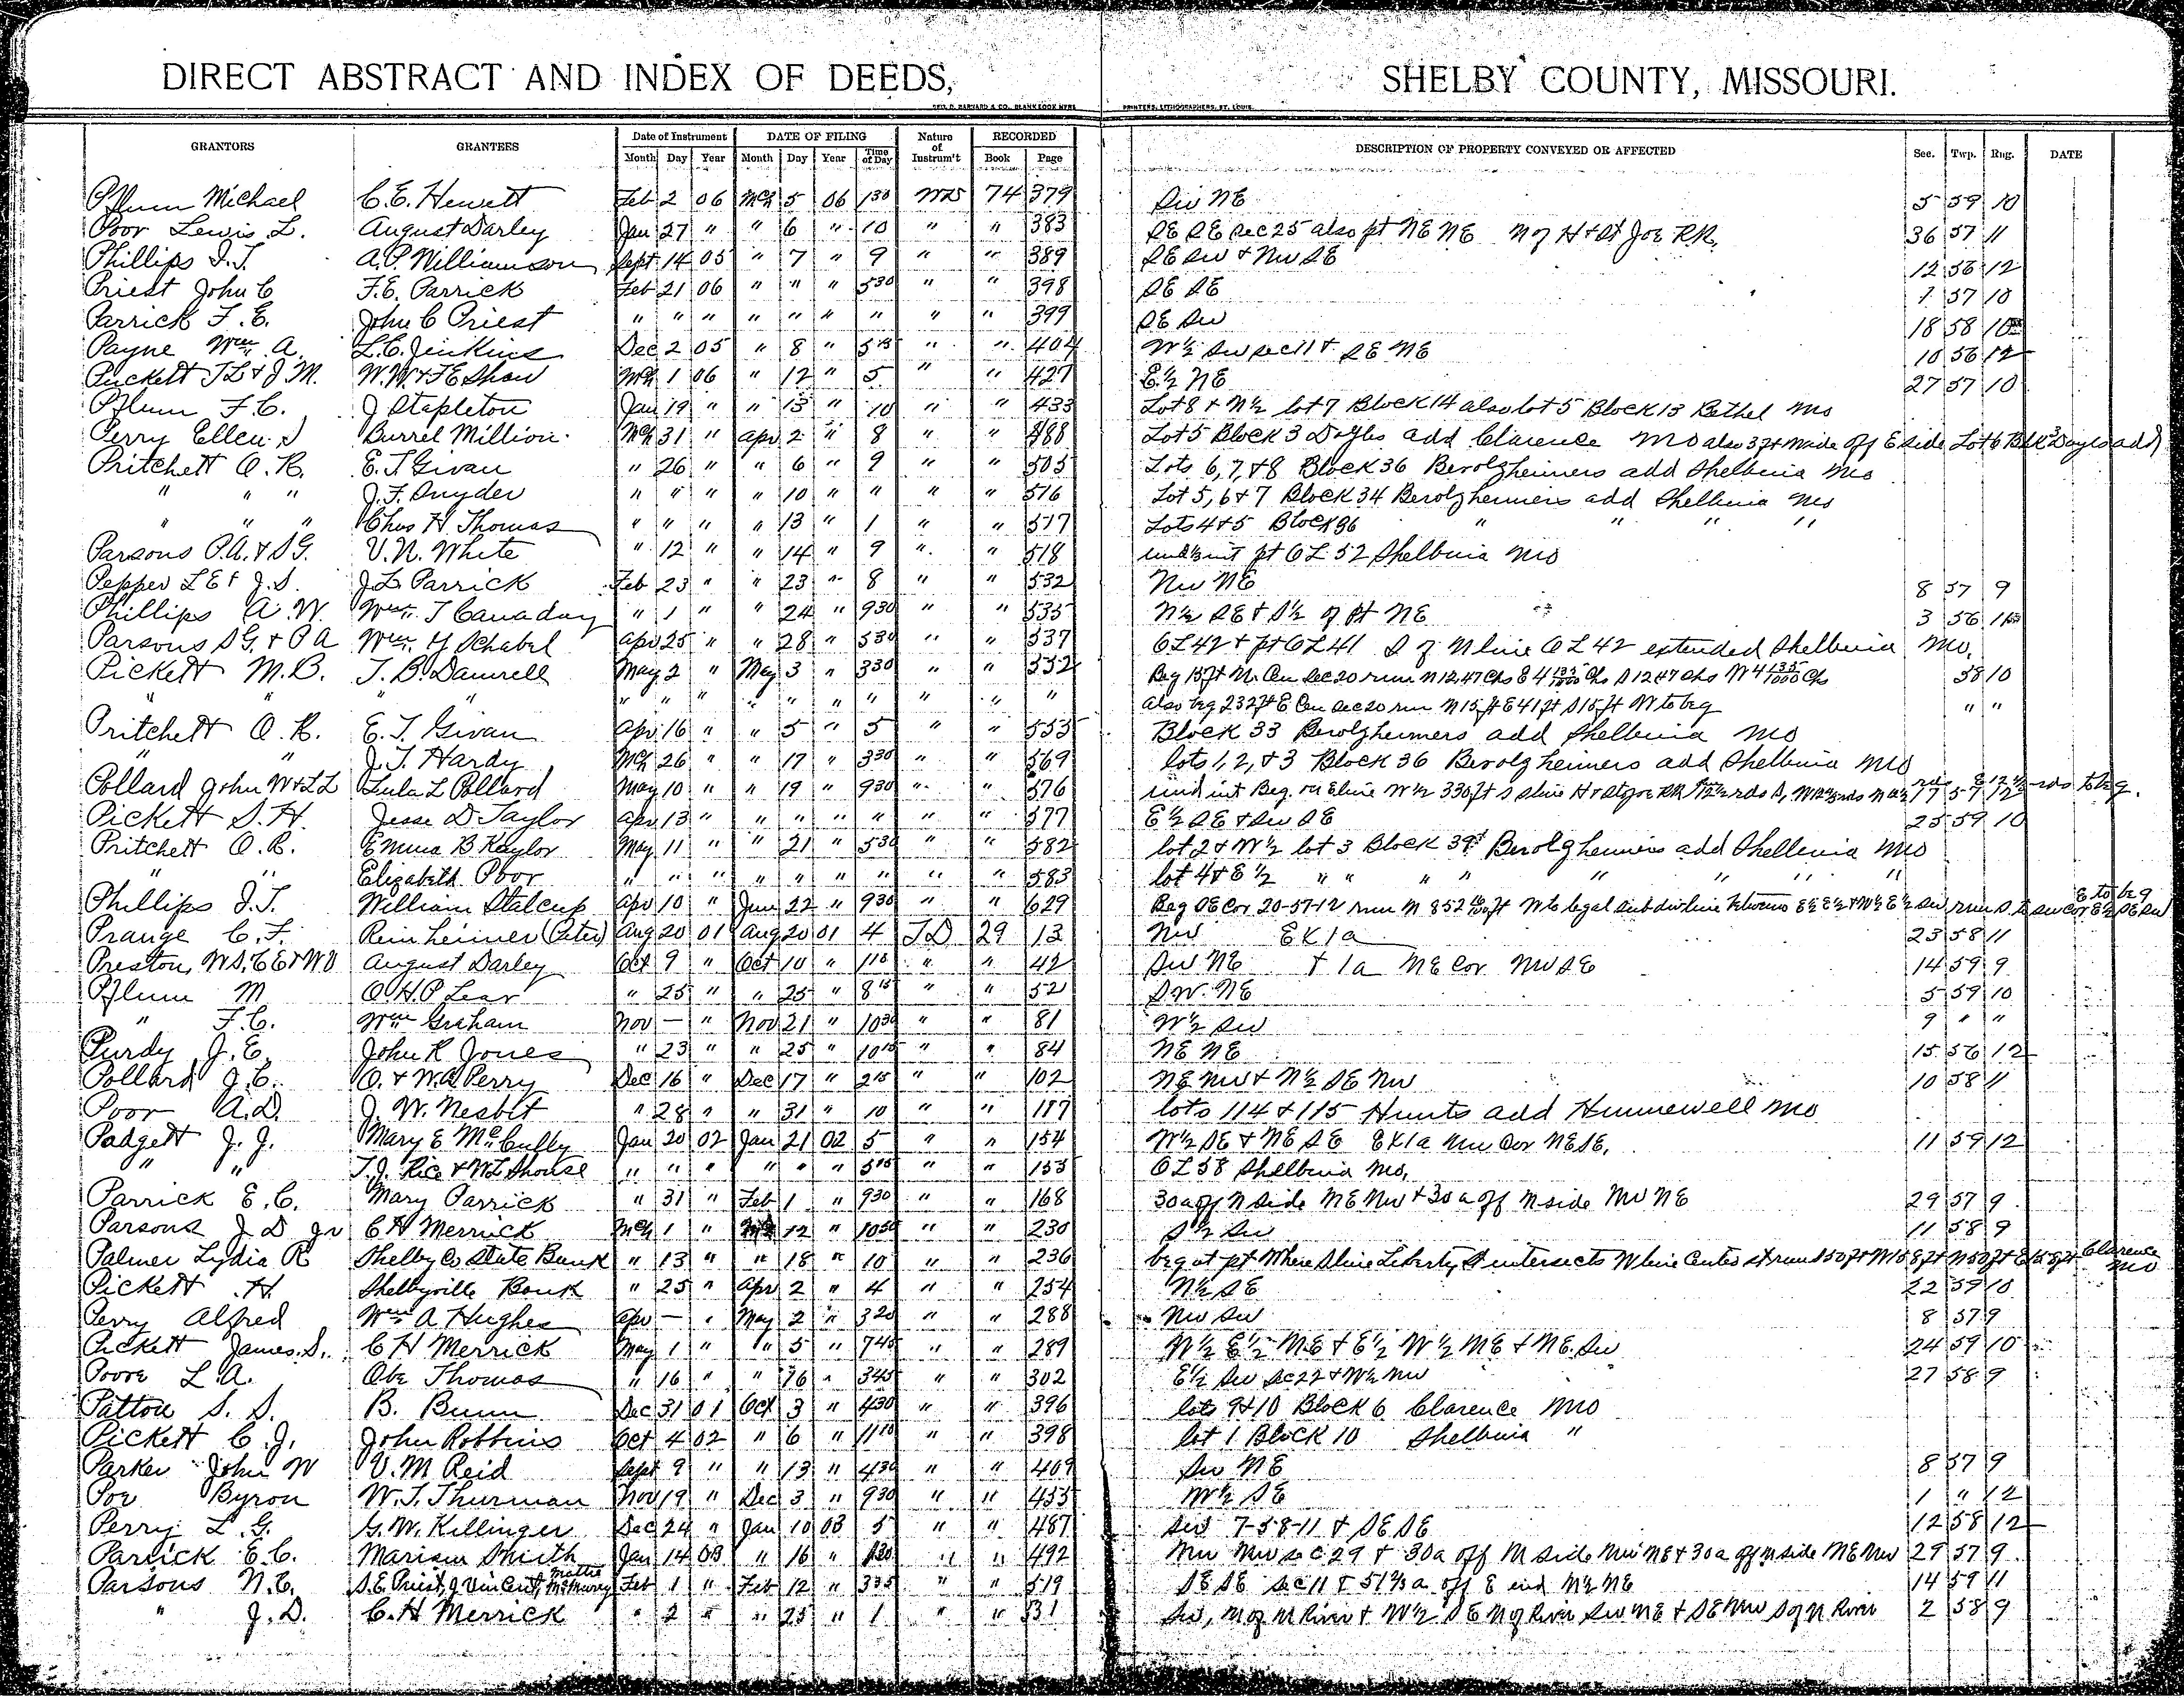 DIRECT ABSTRACT AND INDEX OF DEEDS, SHELBY COUNTY, MISSOURI.
GEO. D. BARNARD & CO. BLANK BOOK MFRS. PRINTERS, LITHOGRAPHERS, ST. LOUIS.
GRANTORS GRANTEES Date of Instrument DATE OF FILING Nature of Instrum't RECORDED DESCRIPTION OF PROPERTY CONVEYED OR AFFECTED Sec. Twp. Rng. DATE
Month Day Year Month Day Year Time of Day Book Page
Pflum Michael C.E. Hewett Feb 2 06 Mch 5 06 130 WD 74 379 SW NE 5 59 10
Poor Lewis L. August Darley Jan 27 " " 6 " 10 " " 383 SE SE Sec 25 also pt NE NE N of H & St Joe R.R. 36 57 11
Phillips I.T. A.P. Williamson Sept 14 05 " 7 " 9 " " 389 SE SW & NW SE 12 56 12
Priest John C F.E. Parrick Feb 21 06 " " " 530 " " 398 SE SE 1 57 10
Parrick F.E. John C Priest " " " " " " " " " 399 SE SW 18 58 10
Payne Wm A. L.C. Jenkins Dec 2 05 " 8 " 515 " " 404 W½ SW Sec 11 & SE NE 10 56 12
Puckett T L & J M. W.W. & F E Shaw Mch 1 06 " 12 " 5 " " 427 E½ NE 27 57 10
Pflum F.C. J Stapleton Jan 19 " " 13 " 10 " " 433 Lot 8 & N½ lot 7 Block 14 also lot 5 Block 13 Bethel Mo
Perry Ellen S Burrel Million Mch 31 " Apr 2 " 8 " " 488 Lot 5 Block 3 Doyles add Clarence Mo also 3 ft wide off E side Lot 6 Blk 3 Doyles add
Pritchett O.R. E.T Givan " 26 " " 6 " 9 " " 505 Lots 6, 7, & 8 Block 36 Berolzheimers add Shelbina Mo
" " " J.F. Snyder " " " " 10 " " " " 516 Lot 5, 6 & 7 Block 34 Berolzheimers add Shelbina Mo
" " " Chas H Thomas " " " " 13 " 1 " " 517 Lots 4 & 5 Block 36 " " " "
Parsons P.A. & S G. V.N. White " 12 " " 14 " 9 " " 518 und ½ int pt OL 52 Shelbina Mo
Pepper L E & J.S. J L Parrick Feb 23 " " 23 " 8 " " 532 NW NE 8 57 9
Phillips A.W. Wm. T Canaday " 1 " " 24 " 930 " " 535 N½ SE & S½ of pt NE 3 56 11
Parsons S G. & P A Wm. H Schabel Apr 25 " " 28 " 530 " " 537 OL 42 & pt OL 41 S of N line OL 42 extended Shelbina Mo.
Pickett M.B. T.B. Damrell May 2 " May 3 " 330 " " 552 Beg 15 ft N. Cen Sec 20 run N 12.47 Chs E 4 135/1000 Chs S 12.47 Chs W 4 135/1000 Chs 58 10
" " " " " " " " " " " " " also beg 232 ft E Cen Sec 20 run N 15 ft E 41 ft S 15 ft W to beg " "
Pritchett O.R. E.T. Givan Apr 16 " " 5 " 5 " " 553 Block 33 Berolzheimers add Shelbina Mo
" " J.T. Hardy Mch 26 " " 17 " 330 " " 569 lots 1, 2, & 3 Block 36 Berolzheimers add Shelbina Mo
Pollard John W & L L Lula L Pollard May 10 " " 19 " 930 " " 576 und int Beg. on E line W½ 330 ft S S line H & St Joe RR 12½ rds S, W 12½ rds N 12½ rds E 12½ rds to beg. 17 57 12
Pickett S.H. Jesse D Taylor Apr 13 " " " " " " " 577 E½ SE & SW SE 25 59 10
Pritchett O.R. Emma B Kaylor May 11 " " 21 " 530 " " 582 lot 2 & W½ lot 3 Block 39 Berolzheimers add Shelbina Mo
" " Elizabeth Poor " " " " " " " " " 583 lot 4 & E½ " " " " " " " "
Phillips I.T. William Stalcup Apr 10 " Jun 22 " 930 " " 629 Beg SE Cor 20-57-12 run N 852 ft W to legal subdivline between E½ E½ & W½ E½ SW run S to SW cor E½ SE SW E to beg
Prange C.F. Reinheimer (Peter) Aug 20 01 Aug 20 01 4 TD 29 13 NW EX 1a 23 58 11
Preston, W S, C E & W D August Darley Oct 9 " Oct 10 " 110 " " 42 SW NE & 1a NE Cor NW SE 14 59 9
Pflum M O.H.P Lear " 25 " " 25 " 815 " " 52 SW. NE 5 59 10
" F.C. Wm Graham Nov — " Nov 21 " 1030 " " 81 W½ SW 9 " "
Purdy J.E. John R Jones " 23 " " 25 " 1015 " " 84 NE NE 15 56 12
Pollard J.C. O. & W.A Perry Dec 16 " Dec 17 " 215 " " 102 NE NW & N½ SE NW 10 58 11
Poor A.D. J. W. Nesbit " 28 " " 31 " 10 " " 117 lots 114 & 115 Hunts add Hunnewell Mo
Padgett J.J. Mary E McCully Jan 20 02 Jan 21 02 5 " " 154 W½ SE & NE SE EX 1a NW Cor NE SE. 11 59 12
" " T.J. Rice & W L Shouse " " " " " " 515 " " 155 OL 58 Shelbina Mo.
Parrick E.C. Mary Parrick " 31 " Feb 1 " 930 " " 168 30a off N side NE NW & 30 a off N side NW NE 29 57 9
Parsons J D Jr C H Merrick Mch 1 " Mch 12 " 1050 " " 230 S½ SW 11 58 9
Palmer Lydia R Shelby Co State Bank " 13 " " 18 " 10 " " 236 beg at pt Where S line Liberty St intersects W line Center st run S 50 ft W 158 ft N 50 ft E 158 ft Clarence Mo
Pickett H. Shelbyville Bank " 25 " Apr 2 " 4 " " 254 N½ SE 22 59 10
Perry Alfred Wm A Hughes Apr — " May 2 " 320 " " 288 NW SW 8 57 9
Pickett James S. C H Merrick May 1 " " 5 " 745 " " 289 W½ E½ NE & E½ W½ NE & NE. SW 24 59 10
Poore L.A. Abe Thomas " 16 " " 16 " 345 " " 302 E½ SW Sec 22 & W½ NW 27 58 9
Patton S. S. B. Bunn Dec 31 01 Oct 3 " 430 " " 396 lots 9 & 10 Block 6 Clarence Mo
Pickett C.J. John Robbins Oct 4 02 " 6 " 1110 " " 398 lot 1 Block 10 Shelbina "
Parker John W V.M Reid Sept 9 " " 13 " 430 " " 409 SW NE 8 57 9
Poe Byron W.T. Thurman Nov 19 " Dec 3 " 930 " " 455 W½ SE 1 " 12
Perry L.G. G.W. Killinger Dec 24 " Jan 10 03 5 " " 487 SW 7-58-11 & SE SE 12 58 12
Parrick E.C. Marion Smith Jan 14 03 " 16 " 130 " " 492 NW NW Sec 29 & 30a off N side NW NE & 30 a off N side NE NW 29 57 9
Parsons N.C. S.E. Priest, J Vincent, Mattie McMurry Feb 1 " Feb 12 " 335 " " 519 SE SE Sec 11 & 51⅔ a off E end N½ NE 14 59 11
" J.D. C.H Merrick " 2 " " 25 " 1 " " 531 SW, N of N River & W½ SE N of River SW NE & SE NW S of N River 2 58 9